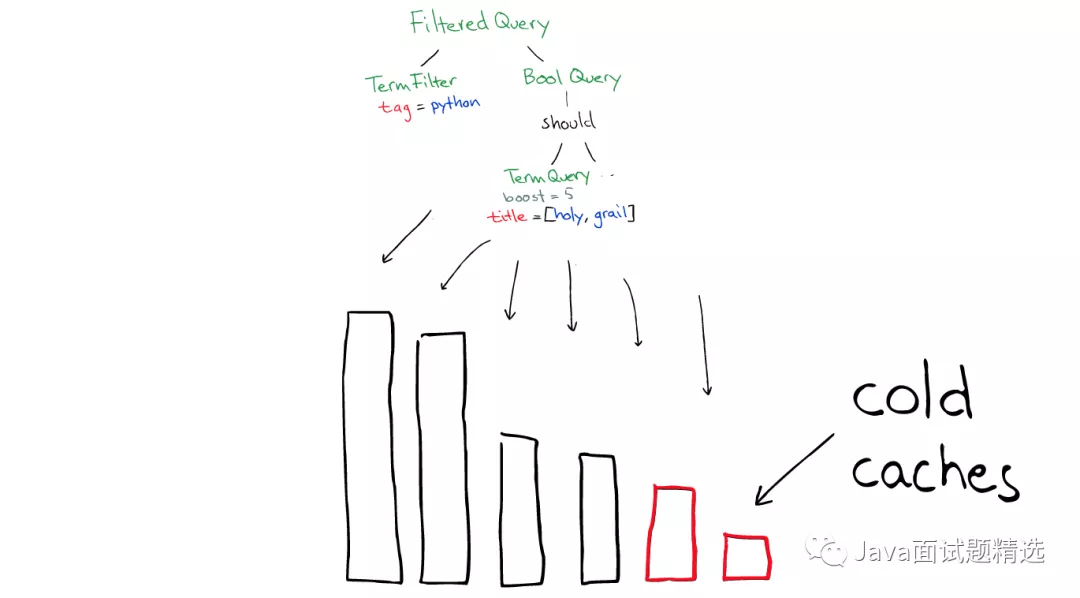 Filtered Query
TermFilter
tag = python
Bool Query
should
TermQuery ...
boost = 5
title = [holy, grail]
cold
caches
Java面试题精选